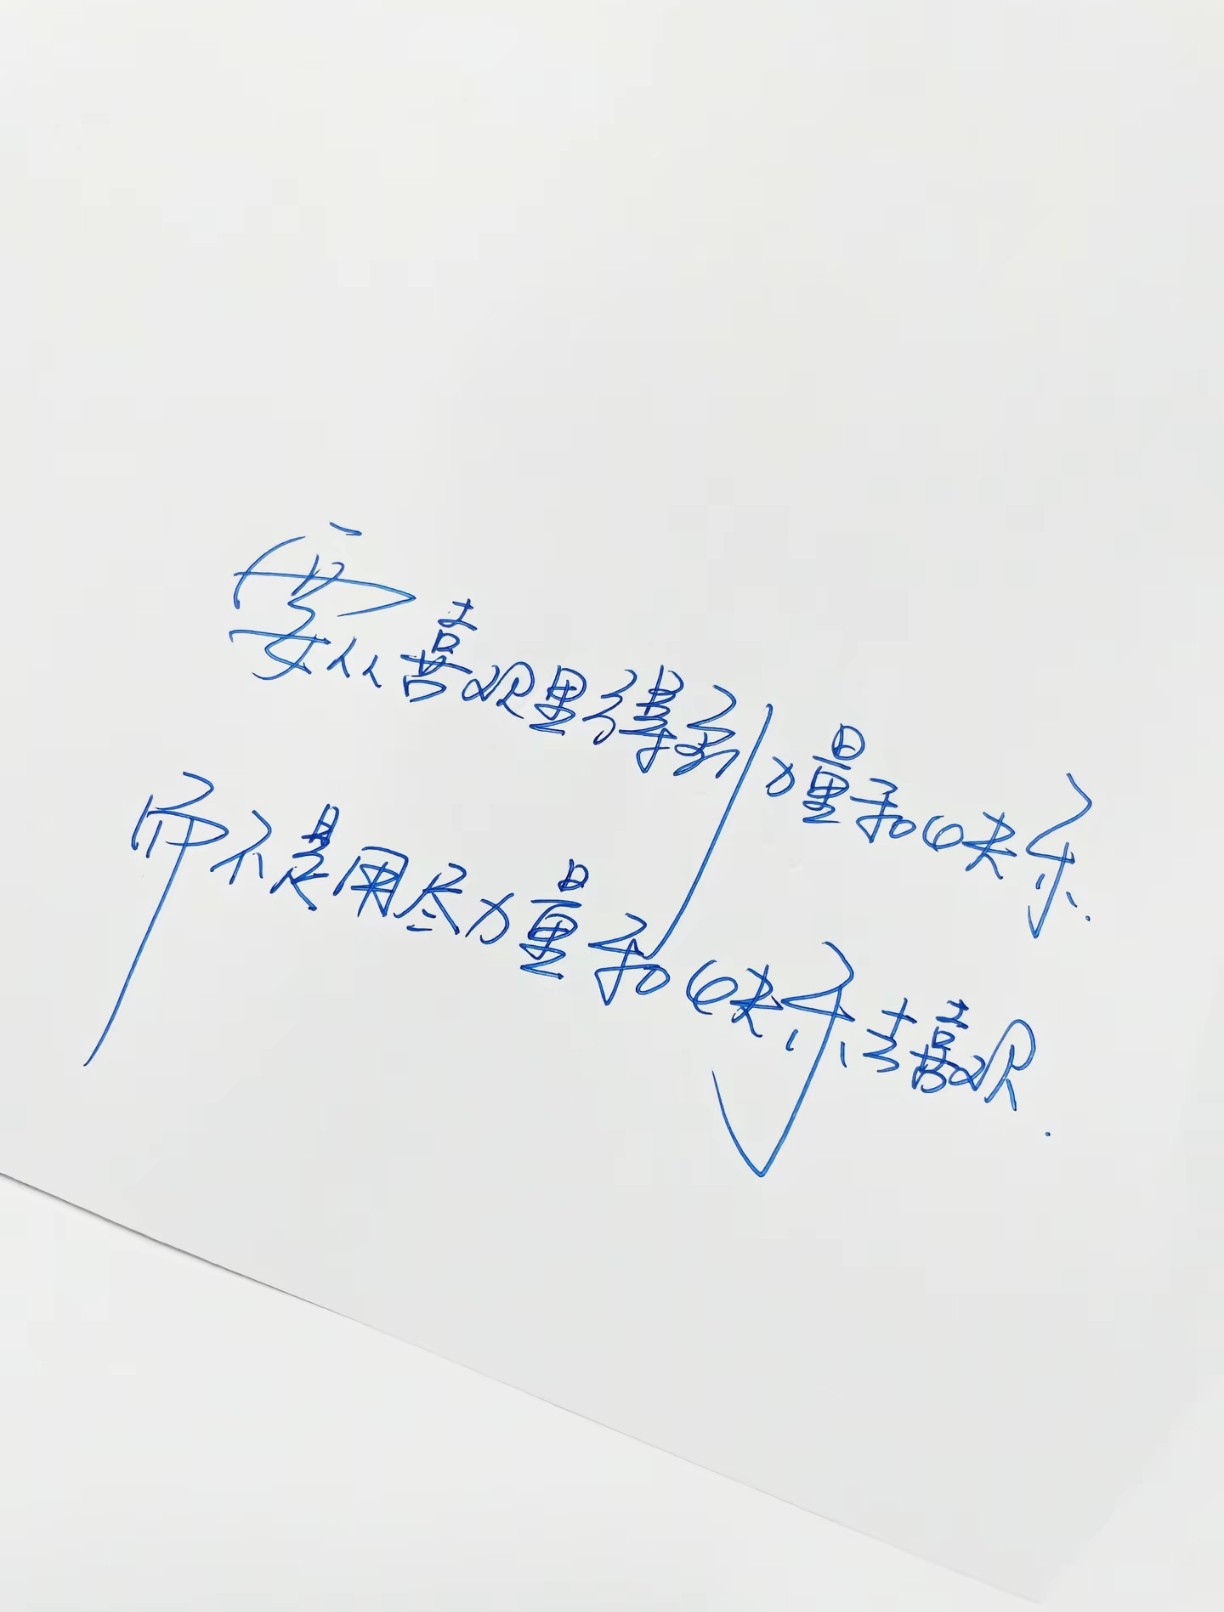 要从喜欢里得到力量和快乐.
而不是用尽力量和快乐去喜欢.